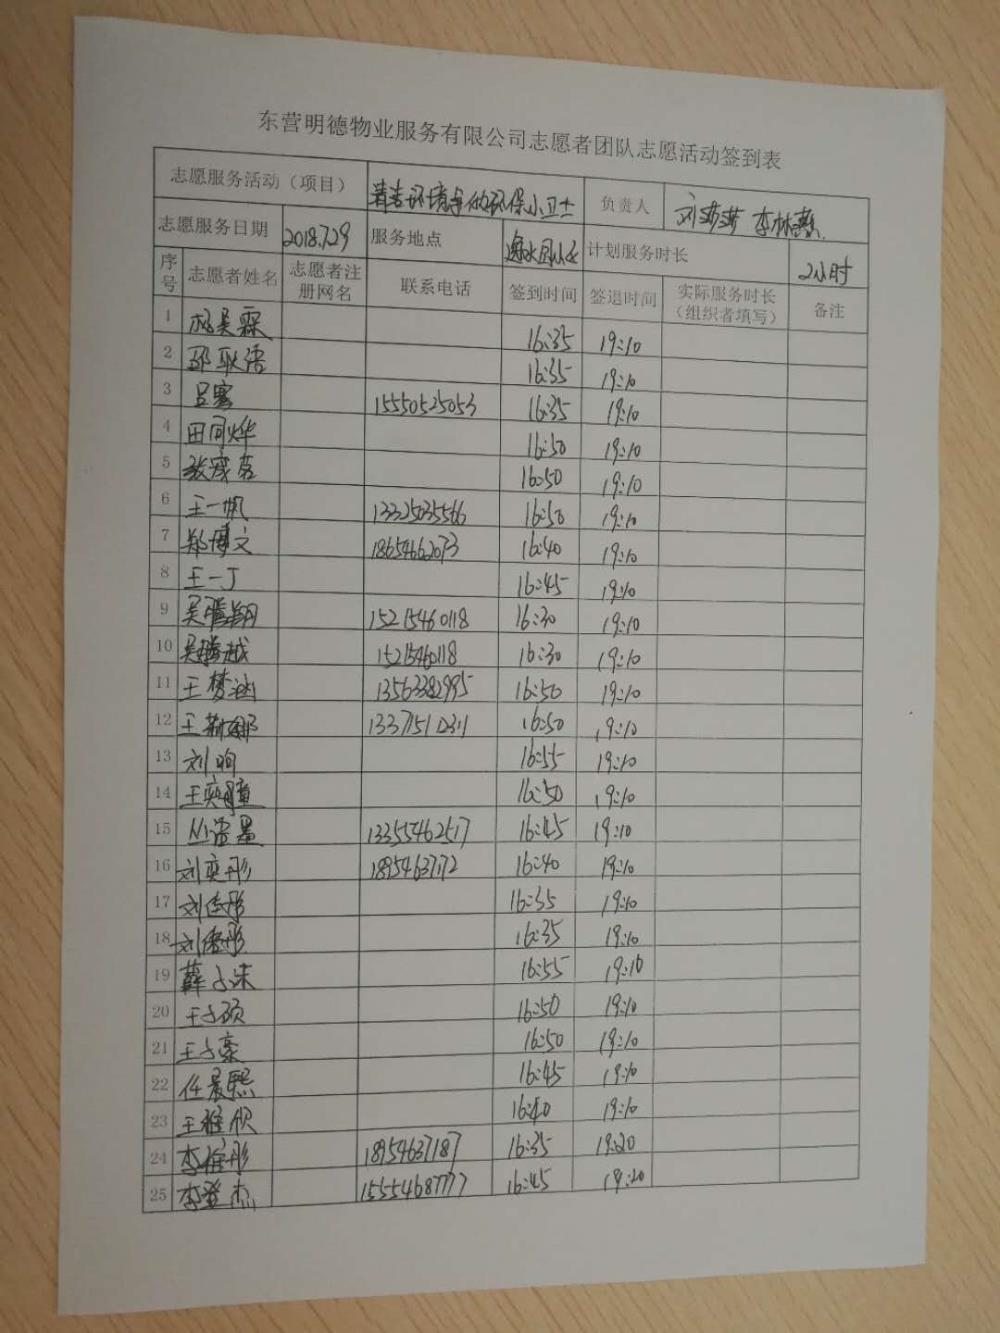 东营明德物业服务有限公司志愿者团队志愿活动签到表
志愿服务活动（项目） 清洁环境争做环保小卫士 负责人 刘莎莎 李林燕
志愿服务日期 2018.7.29 服务地点 计划服务时长 2小时
序号 志愿者姓名 志愿者注册网名 联系电话 签到时间 签退时间 实际服务时长（组织者填写） 备注
1 杨昊霖 16:35 19:10
2 邵耿语 16:35 19:10
3 吕骞 15550525053 16:35 19:10
4 田同烨 16:50 19:10
5 16:50 19:10
6 王一帆 13325035566 16:50 19:10
7 郑博文 18654662073 16:40 19:10
8 王一丁 16:45 19:10
9 吴腾翔 15215460118 16:30 19:10
10 吴腾越 15215460118 16:30 19:10
11 王梦涵 13563382995 16:50 19:10
12 王 16:50 19:10
13 刘响 16:55 19:10
14 王奕 16:50 19:10
15 13355462517 16:45 19:10
16 刘奕彤 18954637172 16:40 19:10
17 刘佳彤 16:35 19:10
18 刘 彤 16:35 19:10
19 薛子涞 16:55 19:10
20 王子硕 16:50 19:10
21 王子豪 16:50 19:10
22 任晨熙 16:45 19:10
23 王雅欣 16:40 19:10
24 李 彤 18954637187 16:35 19:20
25 李登杰 15554687777 16:45 19:20